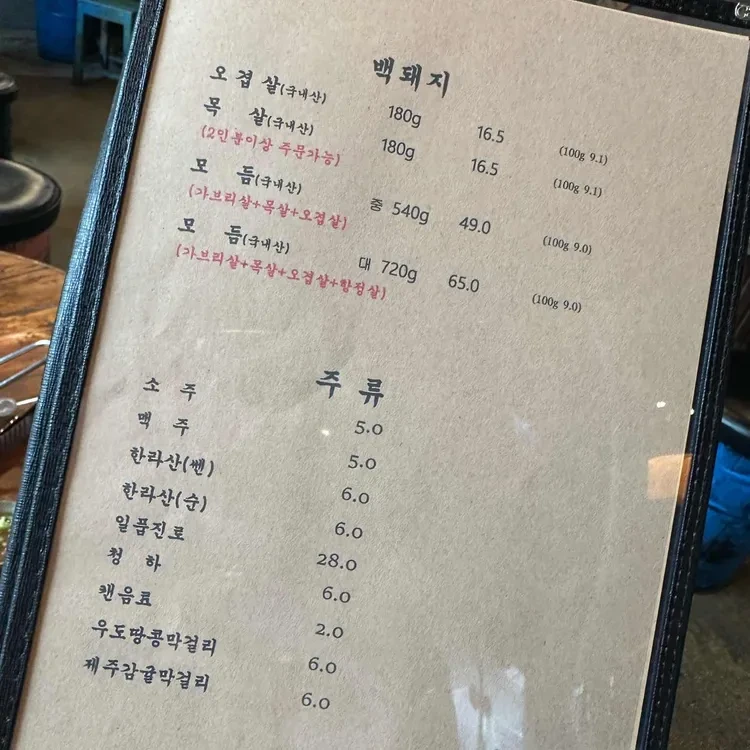 백돼지
오겹살(국내산) 180g 16.5 (100g 9.1)
목 살(국내산) 180g 16.5 (100g 9.1)
(2인분이상 주문가능)
모 듬(국내산) 중 540g 49.0 (100g 9.0)
(가브리살+목살+오겹살)
모 듬(국내산) 대 720g 65.0 (100g 9.0)
(가브리살+목살+오겹살+항정살)
주 류
소 주 5.0
맥 주 5.0
한라산(쎈) 6.0
한라산(순) 6.0
일품진로 28.0
청 하 6.0
캔음료 2.0
우도땅콩막걸리 6.0
제주감귤막걸리 6.0